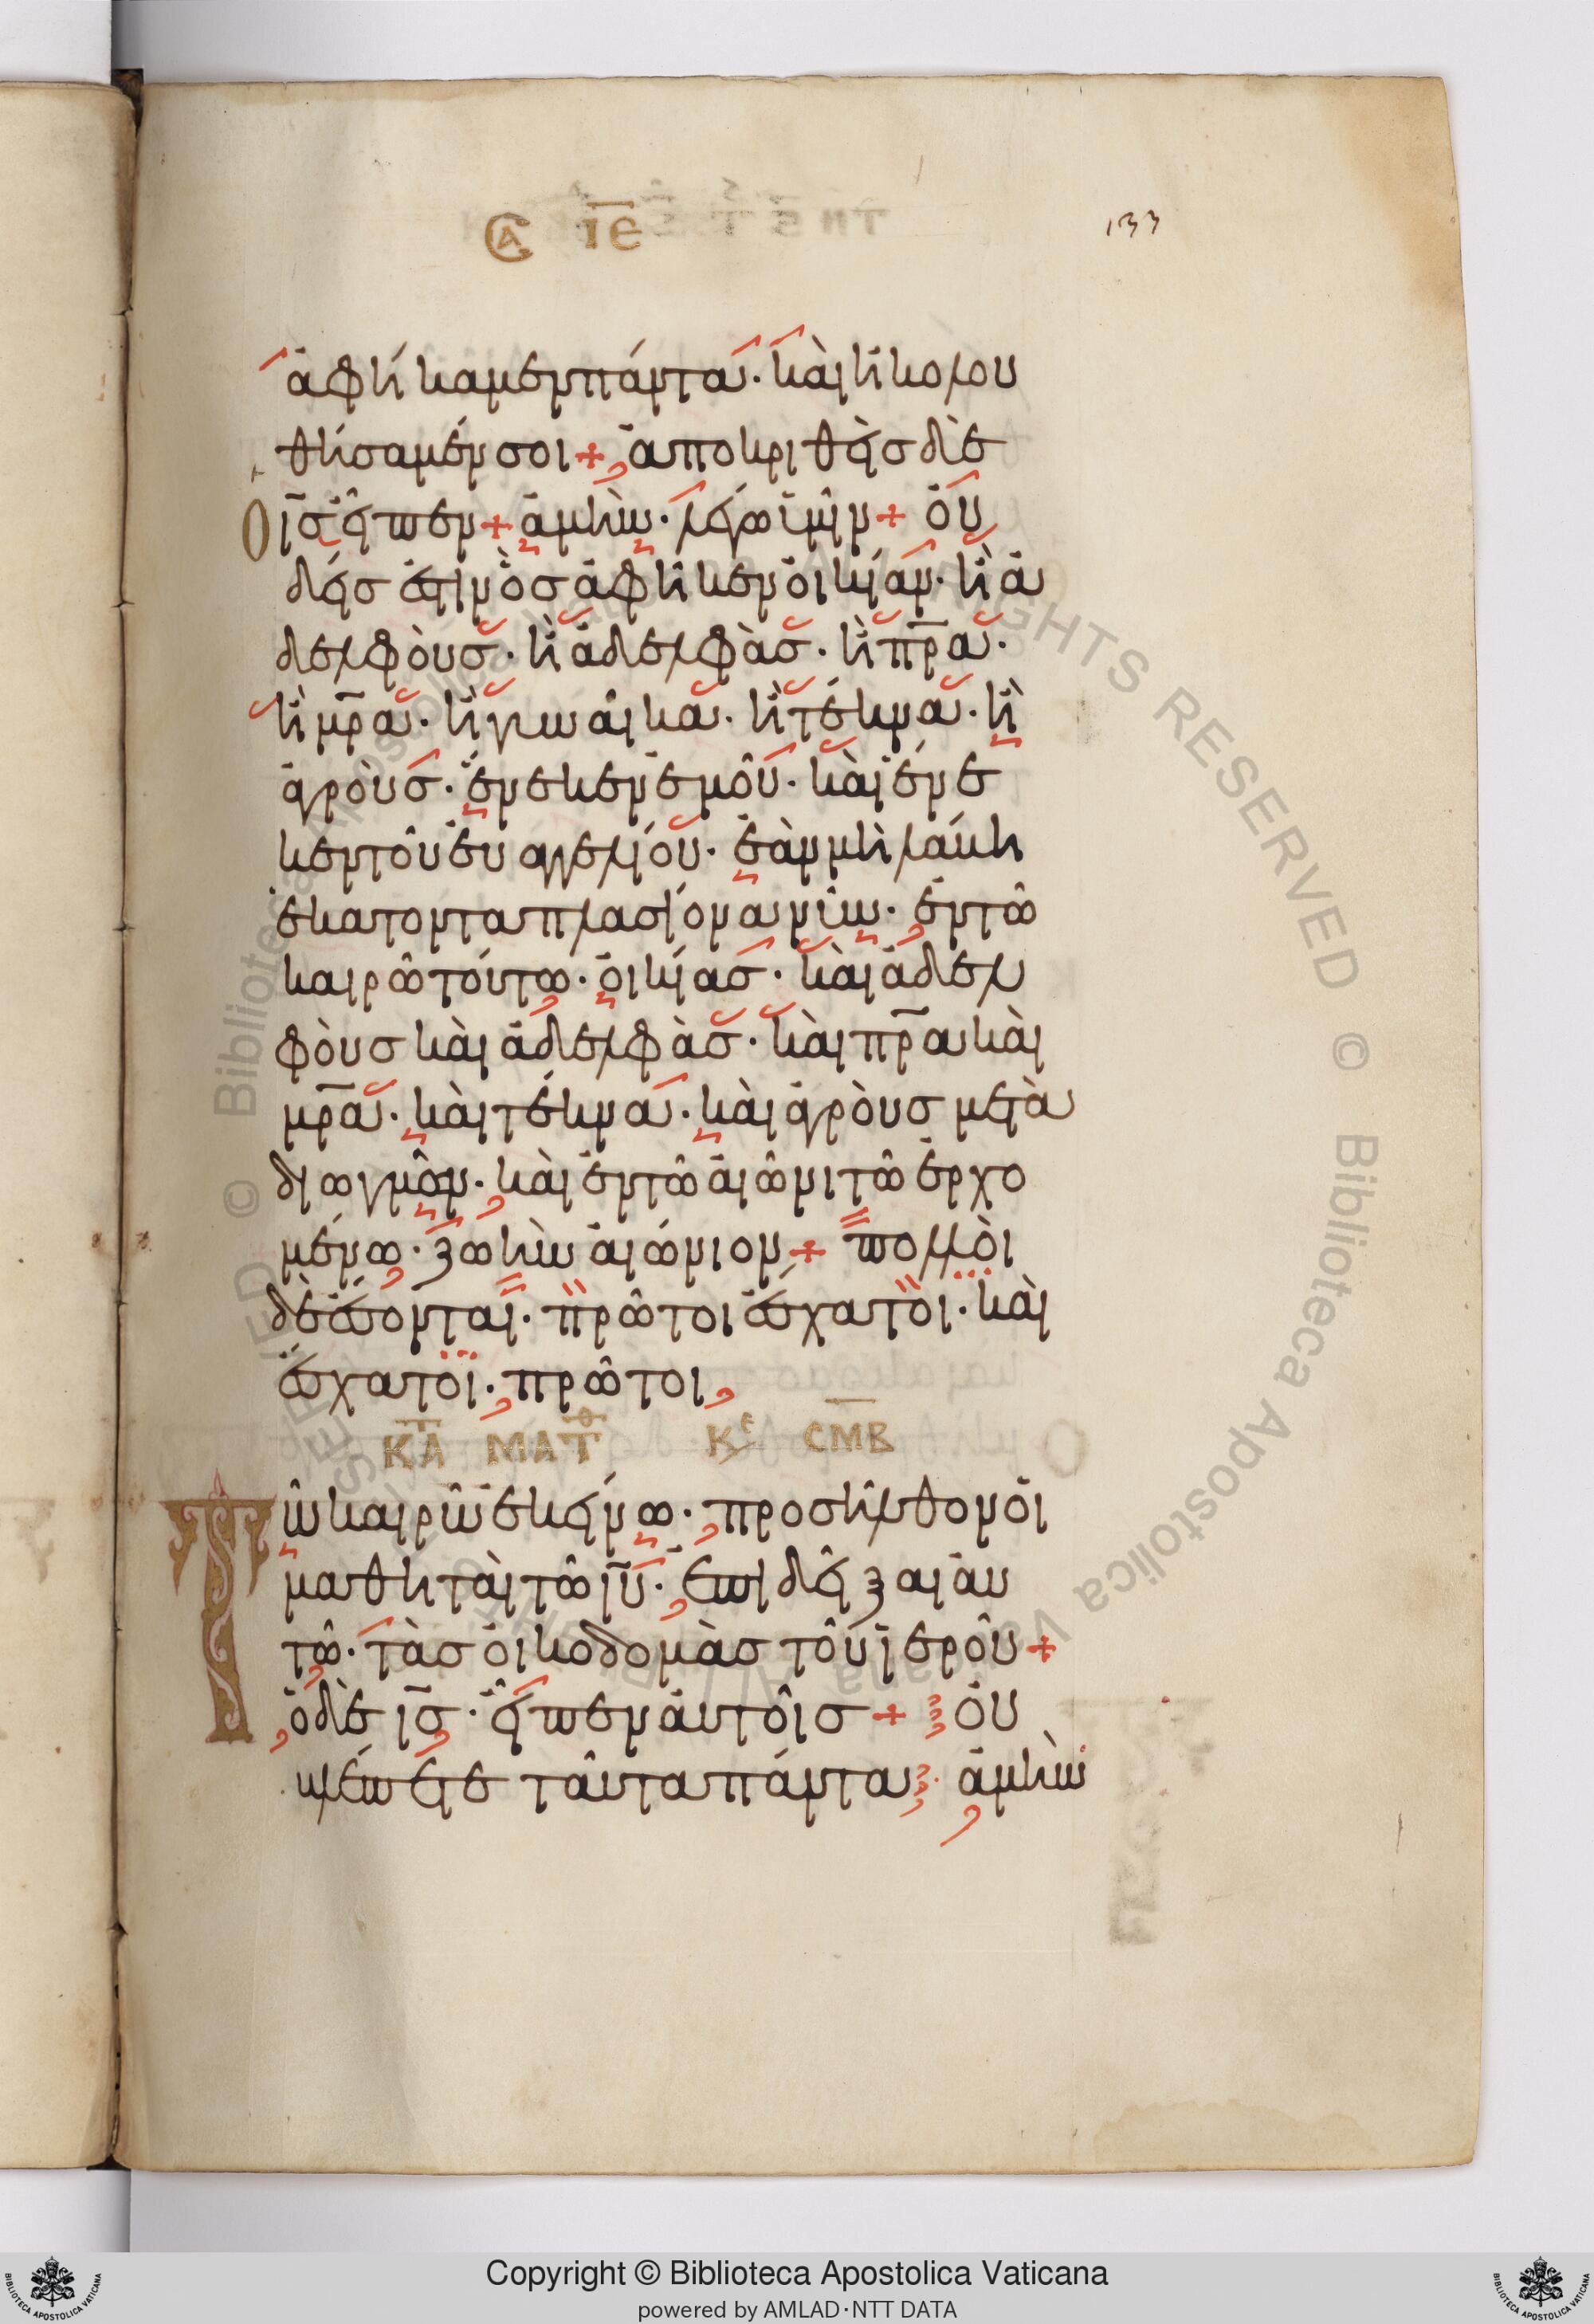 ΣΑ ΙΕ 133
ἀφήκαμεν πάντα· καὶ ἠκολου
θήσαμέν σοι + ἀποκριθεὶς δὲ
Ὁ ις εἶπεν + ἀμὴν· λέγω ὑμῖν + οὐ
δείς ἐστιν ὃς ἀφῆκεν οἰκίαν· ἢ ἀ
δελφοὺς· ἢ ἀδελφὰς· ἢ πρα·
ἢ μρα· ἢ γυναῖκα· ἢ τέκνα· ἢ
ἀγροὺς· ἕνεκεν ἐμοῦ· καὶ ἕνε
κεν τοῦ εὐαγγελίου· ἐὰν μὴ λάβη
ἑκατονταπλασίονα νῦν· ἐν τῶ
καιρῶ τούτω· οἰκίας· καὶ ἀδελ
φοὺς καὶ ἀδελφὰς· καὶ πρα καὶ
μρα· καὶ τέκνα· καὶ ἀγροὺς μετὰ
διωγμῶν· καὶ ἐν τῶ αἰῶνι τῶ ἐρχο
μένω· ζωὴν αἰώνιον + πολλοὶ
δὲ ἔσονται· πρῶτοι ἔσχατοι· καὶ
ἔσχατοι· πρῶτοι,
ΚΑ ΜΑΤΘ ΚΕ ΣΜΒ
Τῶ καιρῶ ἐκείνω· προσῆλθον οἱ
μαθηταὶ τῶ ιυ· ἐπιδεῖξαι αὐ
τῶ· τὰς οἰκοδομὰς τοῦ ἱεροῦ +
ὁ δὲ ις· εἶπεν αὐτοῖς + οὐ
βλέπετε ταῦτα πάντα· ἀμὴν
© Biblioteca Apostolica Vaticana ALL RIGHTS RESERVED
Copyright © Biblioteca Apostolica Vaticana
powered by AMLAD·NTT DATA
BIBLIOTECA APOSTOLICA VATICANA
BIBLIOTECA APOSTOLICA VATICANA